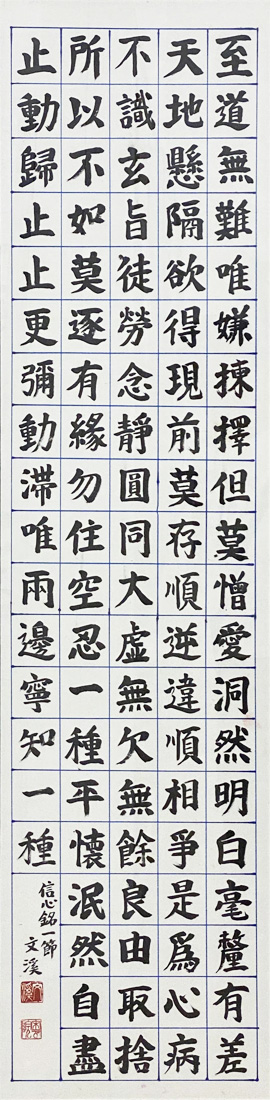 至道無難唯嫌揀擇但莫憎愛洞然明白毫釐有差
天地懸隔欲得現前莫存順逆違順相爭是爲心病
不識玄旨徒勞念靜圓同大虛無欠無餘良由取捨
所以不如莫逐有緣勿住空忍一種平懷泯然自盡
止動歸止止更彌動滯唯兩邊寧知一種
信心銘一節
文溪